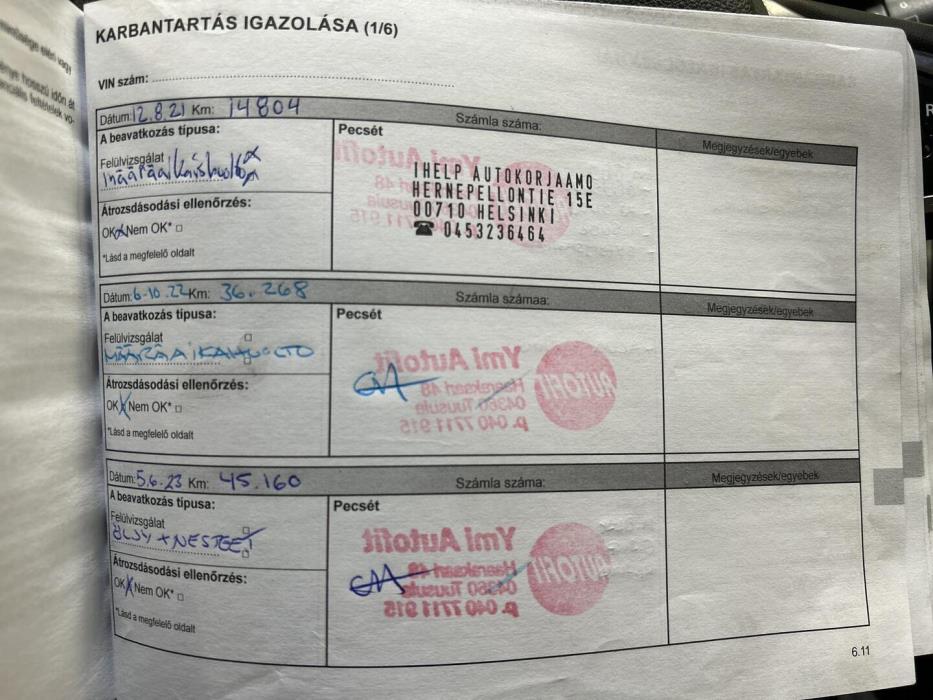 KARBANTARTÁS IGAZOLÁSA (1/6)
VIN szám:
Dátum: 12.8.21 Km: 14804
Számla száma:
Megjegyzések/egyebek
A beavatkozás típusa:
Felülvizsgálat
Átrozsdásodási ellenőrzés:
OK Nem OK*
*Lásd a megfelelő oldalt
Pecsét
IHELP AUTOKORJAAMO
HERNEPELLONTIE 15E
00710 HELSINKI
☎ 0453236464
Dátum: 6-10.22 Km: 36.268
Számla számaa:
Megjegyzések/egyebek
A beavatkozás típusa:
Felülvizsgálat
MÄÄRÄAIKAHUOLTO
Átrozsdásodási ellenőrzés:
OK Nem OK*
*Lásd a megfelelő oldalt
Pecsét
Ymi Autofit
04360 Tuusula
p. 040 7711 915
AUTOFIT
Dátum: 5.6.23 Km: 45.160
Számla száma:
Megjegyzések/egyebek
A beavatkozás típusa:
Felülvizsgálat
ÖLJY + NESTEET
Átrozsdásodási ellenőrzés:
OK Nem OK*
*Lásd a megfelelő oldalt
Pecsét
Ymi Autofit
04360 Tuusula
p. 040 7711 915
AUTOFIT
6.11